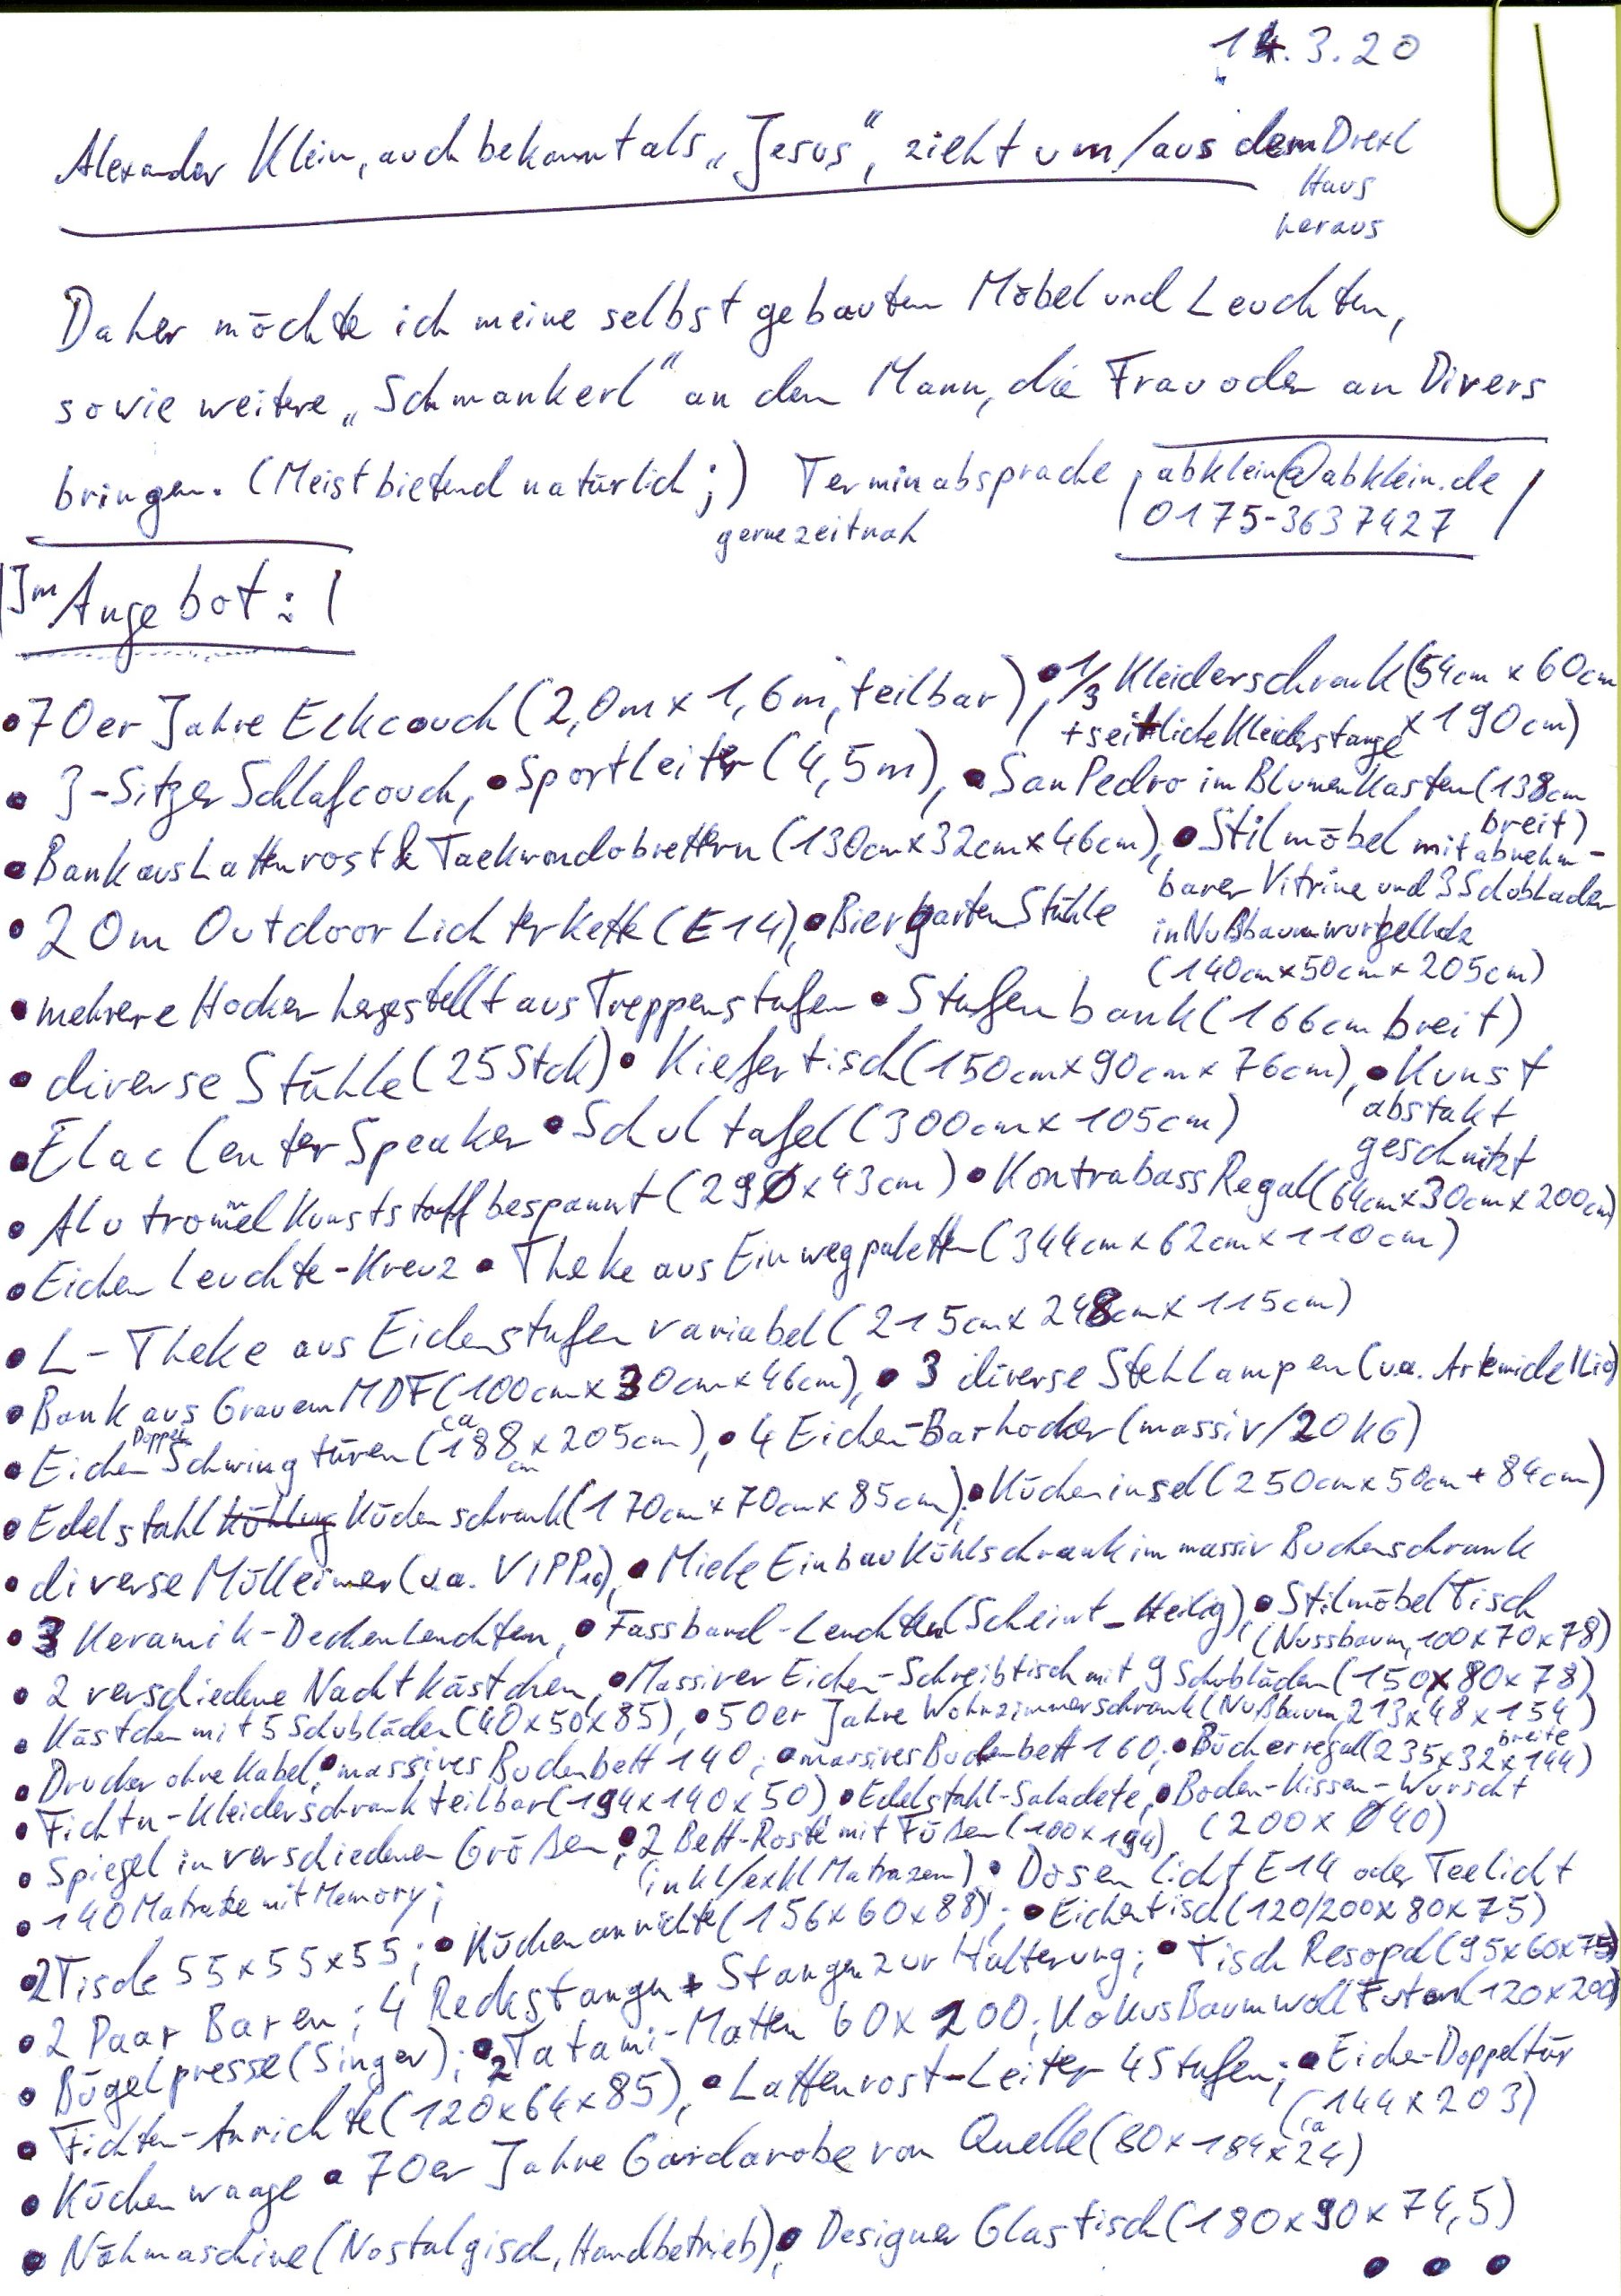 14.3.20
Alexander Klein, auch bekannt als „Jesus“, zieht um/aus dem Drexl
Haus
heraus
Daher möchte ich meine selbst gebauten Möbel und Leuchten,
sowie weitere „Schmankerl“ an den Mann, die Frau oder an Divers
bringen. (Meistbietend natürlich ;) Terminabsprache abklein@abklein.de
gerne zeitnah 0175-3637427
Im Angebot:
• 70er Jahre Eckcouch (2,0m x 1,6m, teilbar), • 1/3 Kleiderschrank (54cm x 60cm
+ seitliche Kleiderstange x 190cm)
• 3-Sitzer Schlafcouch, • Sportleiter (4,5m), • San Pedro im Blumenkasten (138cm
breit)
• Bank aus Lattenrost & Taekwondobrettern (130cm x 32cm x 46cm), • Stilmöbel mit abnehm-
barer Vitrine und 3 Schubladen
• 20m Outdoor Lichterkette (E14), • Biergarten Stühle in Nußbaumwurzelholz
(140cm x 50cm x 205cm)
• mehrere Hocker hergestellt aus Treppenstufen • Stufenbank (166cm breit)
• diverse Stühle (25 Stck) • Kiefertisch (150cm x 90cm x 76cm), • Kunst
abstakt
geschnitzt
• Elac Center Speaker • Schultafel (300cm x 105cm)
• Alu trommel Kunststoff bespannt (29Ø x 43cm) • Kontrabass Regal (64cm x 30cm x 200cm)
• Eichen Leuchte-Kreuz • Theke aus Einwegpaletten (344cm x 62cm x 110cm)
• L-Theke aus Eichenstufen variabel (215cm x 248cm x 115cm)
• Bank aus Grauem MDF (100cm x 30cm x 46cm), • 3 diverse Stehlampen (u.a. Artemide
• Eichen Doppel Schwingtüren (ca 188cm x 205cm), • 4 Eichen-Barhocker (massiv/20KG)
• Edelstahl Küchenschrank (170cm x 70cm x 85cm), • Kücheninsel (250cm x 50cm + 84cm)
• diverse Mülleimer (u.a. VIPP), • Miele Einbau Kühlschrank im massiv Buchenschrank
• 3 Keramik-Deckenleuchten, • Fassband-Leuchten (Scheint_Heilig), • Stilmöbel Tisch
(Nussbaum, 100x70x78)
• 2 verschiedene Nachtkästchen, • Massiver Eichen-Schreibtisch mit 9 Schubläden (150x80x78)
• Kästchen mit 5 Schubläden (40x50x85), • 50er Jahre Wohnzimmerschrank (Nußbaum, 213x48x154)
• Drucker ohne Kabel, • massives Buchenbett 140; • massives Buchenbett 160; • Bücherregal (235x32x breite 144)
• Fichten-Kleiderschrank teilbar (194x140x50) • Edelstahl-Saladete, • Boden-Kissen-Wurscht
(200x Ø40)
• Spiegel in verschiedenen Größen; • 2 Bett-Roste mit Füßen (100x194)
(inkl/exkl Matrazen) • Dosenlicht E14 oder Teelicht
• 140 Matratze mit Memory;
• 2 Tische 55x55x55; • Küchenanrichte (156x60x88); • Eichentisch (120/200x80x75)
• 2 Paar Baren; 4 Reckstangen + Stangen zur Halterung; • Tisch Resopal (95x60x75)
• Bügelpresse (Singer); • 2 Tatami-Matten 60x200; Kokus Baumwoll Futon (120x200)
• Fichten-Anrichte (120x64x85), • Lattenrost-Leiter 4 Stufen; • Eichen-Doppeltür
(ca 144x203)
• Küchenwaage • 70er Jahre Gardarobe von Quelle (80x184x24)
• Nähmaschine (Nostalgisch, Handbetrieb), • Designer Glastisch (180x90x74,5)
• • •